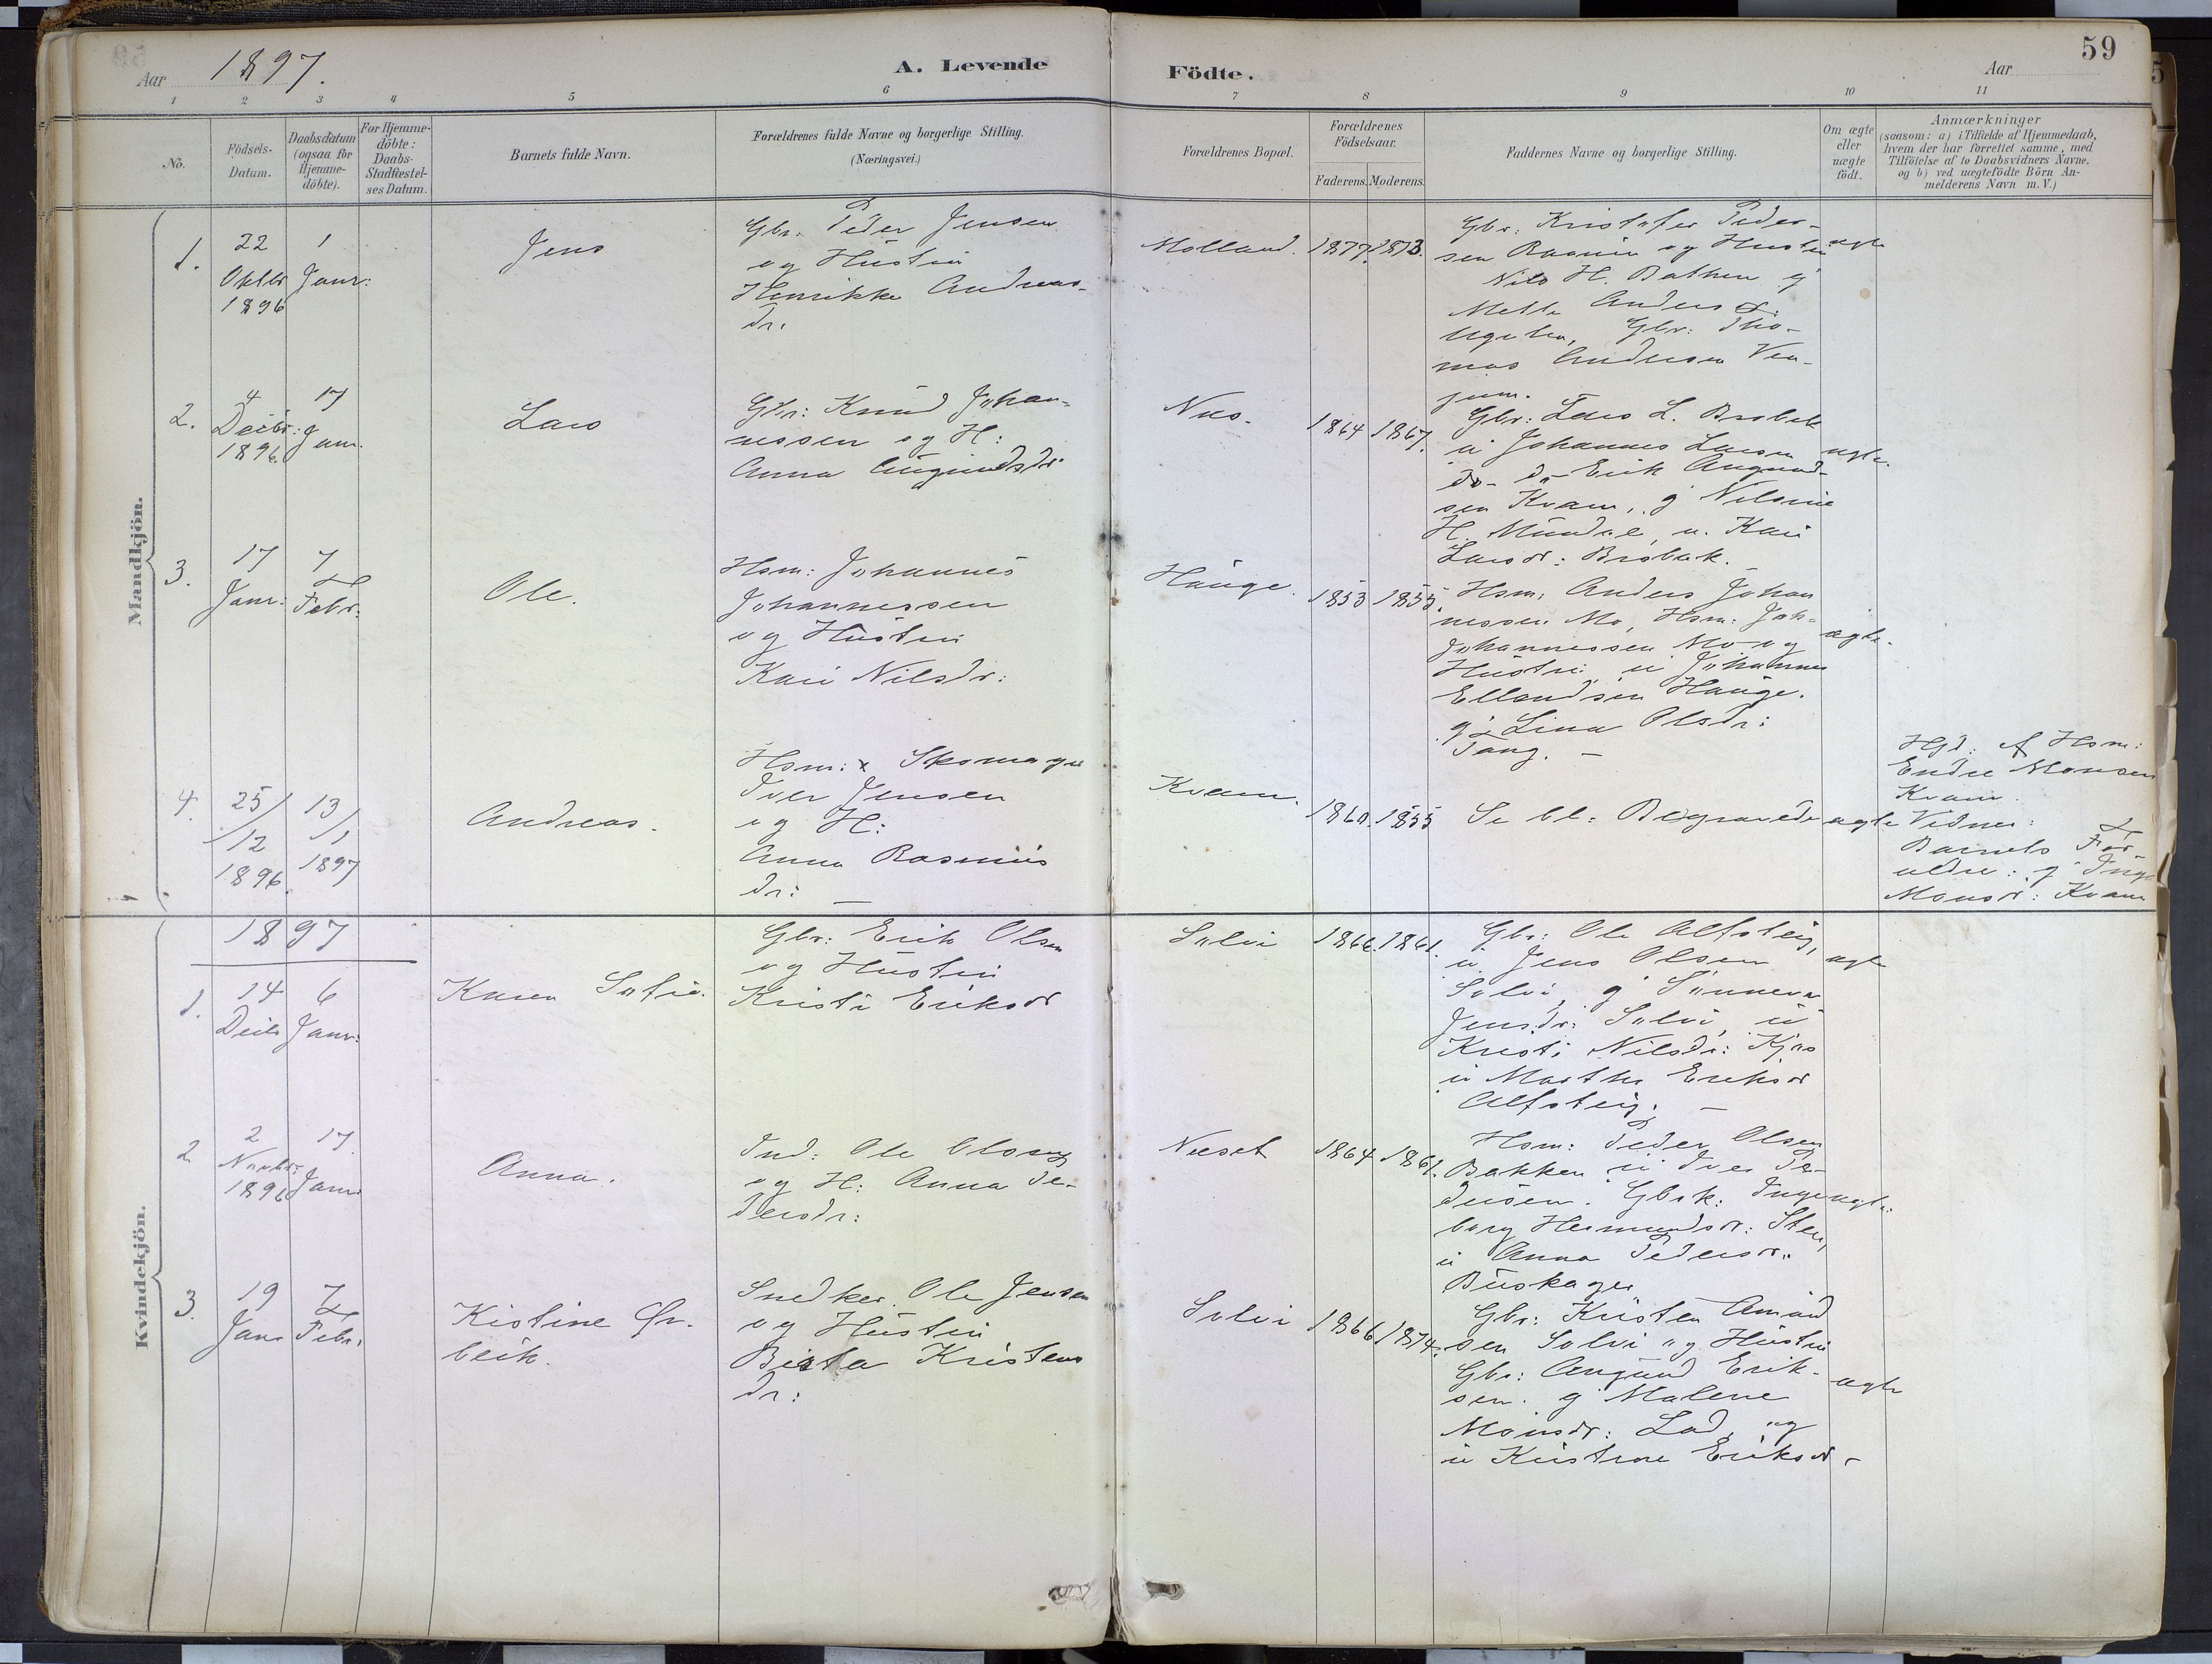 Aar 1897.
A. Levende
Födte.
Aar
59
1 2 3 4 5 6 7 8 9 10 11
No.
Födsels-
Datum.
Daabsdatum
(ogsaa for
Hjemme-
döbte).
For Hjemme-
döbte:
Daabs-
Stadfæstel-
ses Datum.
Barnets fulde Navn.
Forældrenes fulde Navne og borgerlige Stilling.
(Næringsvei.)
Forældrenes Bopæl.
Forældrenes
Födselsaar.
Faderens. Moderens.
Faddernes Navne og borgerlige Stilling.
Om ægte
eller
uægte
födt.
Anmærkninger
(saasom: a) i Tilfælde af Hjemmedaab,
hvem der har forrettet samme, med
Tilföielse af to Daabsvidners Navne,
og b) ved uægtefödte Börn An-
melderens Navn m. V.)
Mandkjön.
1.
22
Oktbr
1896
1
Janr:
Jens
Gbr: Peder Jensen
og Hustru
Henrikke Andreas-
dr.
Molland. 1877. 1873.
Gbr: Kristofer Peder-
sen og Hustru
Nils H. Bakken
Anders
Gbr: Tho-
mas Andersen Ven-
jum.
ægte
2.
4
Decbr:
1896
17
Janr.
Lars
Gbr: Knud Johan-
nessen og H:
Anna Augundsdr
Nus. 1864 1867.
Gbr: Lars L. Brobak
u Johannes Larsen
do- do- Erik Augund-
sen Kvam, g Nilsine
H. Mundal, u. Kari
Larsdr: Brobak.
ægte.
3.
17
Janr:
7
Febr:
Ole.
Hsm: Johannes
Johannessen
og Hustru
Kari Nilsdr:
Hauge. 1853 1855.
Hsm. Anders Johan
nessen Mo, Hsm: Joh-
Johannessen Mo og
Hustru u Johannes
Ellendsen Hauge.
g Lina Olsdr:
Tang. -
ægte.
4.
25/
/12
1896.
13/
/1
1897
Andreas.
Hsm: x Skomager
Iver Jensen
og H:
Anna Rasmus
dr: -
Kvam. 1860. 1855
Se bl: Begravede
ægte
Hjd: af Hsm:
Endre Monsen
Kvam.
Vidner:
Barnets For-
ældre: g Inge
Monsdr: Kvam
Kvindekjön.
1897
1.
14
Decbr
6
Janr:
Karen Sofie.
Gbr: Erik Olsen
og Hustru
Kristi Eriksdr
Solvi 1866. 1861.
Gbr: Ole Alfsteig,
u Jens Olsen
Solvi, g Sünneva
Jensdr: Solvi, u
Kristi Nilsdr: Kjos
u Marthe Eriksdr
Alfsteig: -
ægte
2.
2
Novbr:
1896
17.
Janr
Anna.
Ind: Ole Olsen
og H: Anna Pe-
dersdr:
Næset 1864 1861.
Hsm: Peder Olsen
Bakken u Iver Pe-
dersen. Gbrk: Inge
borg Hermundsdr: Sten,
u Anna Pedersdr:
Buskager
ægte:
3.
19
Janr
7
Febr.
Kistine Ør-
beik.
Snedker Ole Jensen
og Hustru
Berta Kristens
dr:
Solvi 1866 1874.
Gbr: Kristen Amund
sen Solvi og Hustru
Gbr: Augund Erik-
sen. g Malene
Monsdr: Lad, og
u Kristine Eriksdr -
ægte